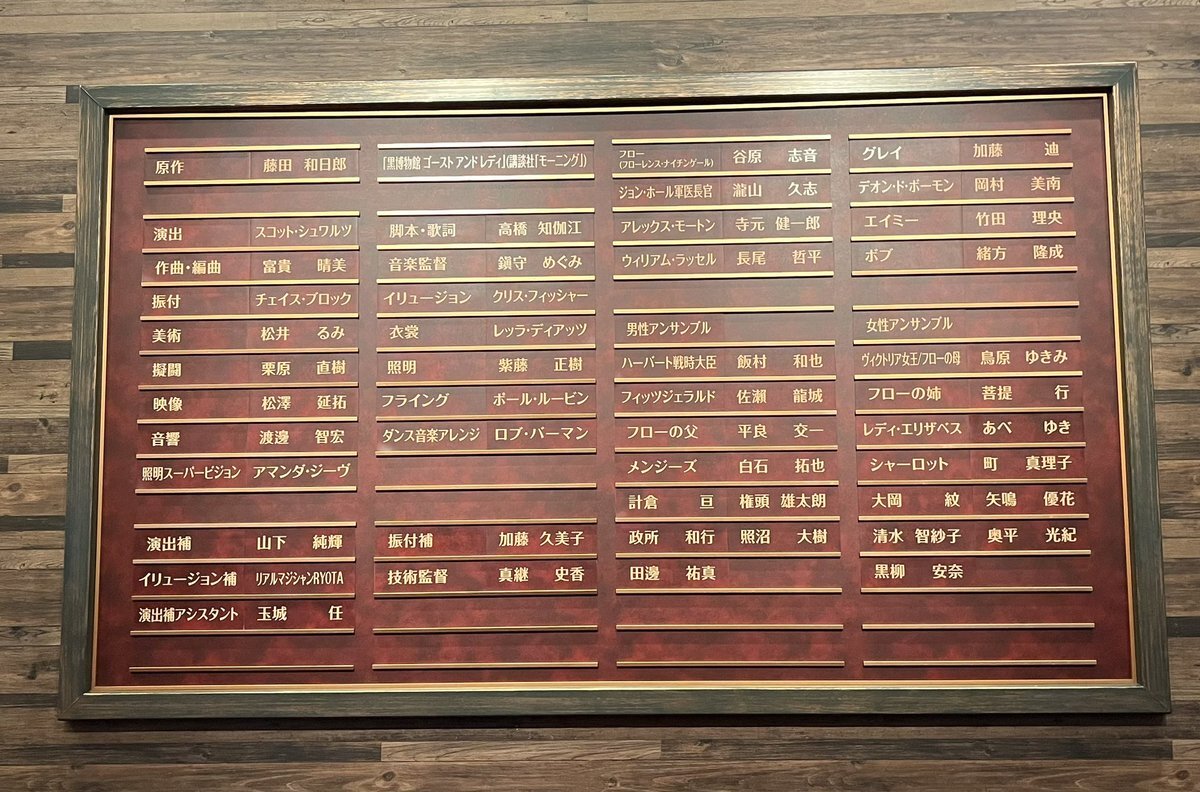 原作 藤田 和日郎
演出 スコット・シュワルツ
作曲・編曲 富貴 晴美
振付 チェイス・ブロック
美術 松井 るみ
擬闘 栗原 直樹
映像 松澤 延拓
音響 渡邉 智宏
照明スーパービジョン アマンダ・ジーヴ
演出補 山下 純輝
イリュージョン補 リアルマジシャンRYOTA
演出補アシスタント 玉城 任
「黒博物館 ゴースト アンド レディ」(講談社「モーニング」)
脚本・歌詞 高橋 知伽江
音楽監督 鎭守 めぐみ
イリュージョン クリス・フィッシャー
衣裳 レッラ・ディアッツ
照明 紫藤 正樹
フライング ポール・ルービン
ダンス音楽アレンジ ロブ・バーマン
振付補 加藤 久美子
技術監督 真継 史香
フロー
(フローレンス・ナイチンゲール) 谷原 志音
ジョン・ホール軍医長官 瀧山 久志
アレックス・モートン 寺元 健一郎
ウィリアム・ラッセル 長尾 哲平
男性アンサンブル
ハーバート戦時大臣 飯村 和也
フィッツジェラルド 佐瀬 龍城
フローの父 平良 交一
メンジーズ 白石 拓也
計倉 亘 権頭 雄太朗
政所 和行 照沼 大樹
田邊 祐真
グレイ 加藤 迪
デオン・ド・ボーモン 岡村 美南
エイミー 竹田 理央
ボブ 緒方 隆成
女性アンサンブル
ヴィクトリア女王/フローの母 鳥原 ゆきみ
フローの姉 菩提 行
レディ・エリザベス あべ ゆき
シャーロット 町 真理子
大岡 紋 矢鳴 優花
清水 智紗子 奥平 光紀
黒柳 安奈